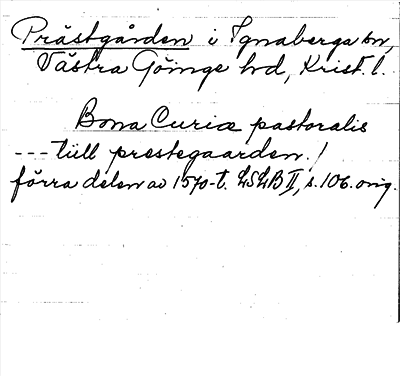 Prästgården i Ignaberga sn,
Västra Göinge hd, Krist. l.
Bona Curiæ pastoralis
--- tiill prestegaarden!
förra delen av 1570-t. LSLB II, s. 106. orig.